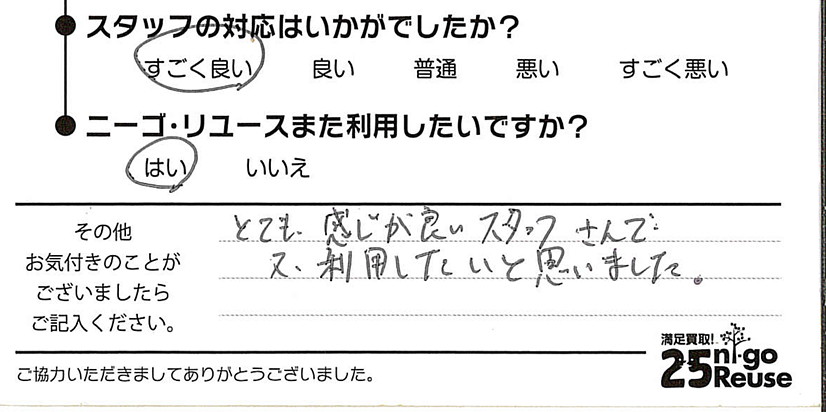 スタッフの対応はいかがでしたか？
すごく良い 良い 普通 悪い すごく悪い
ニーゴ・リユースまた利用したいですか？
はい いいえ
その他
お気付きのことが
ございましたら
ご記入ください。
とても感じが良いスタッフさんで
又、利用したいと思いました。
ご協力いただきましてありがとうございました。
満足買取！
25 ni-go
Reuse